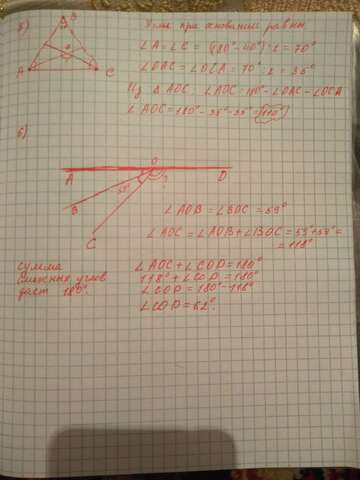 5)
B
A
C
Углы при основании равны
∠A = ∠C = (180° - 40°) : 2 = 70°
∠OAC = ∠OCA = 70° : 2 = 35°
Из △ AOC: ∠AOC = 180° - ∠OAC - ∠OCA
∠AOC = 180° - 35° - 35° = 110°
6)
O
A
D
59°
?
B
C
∠AOB = ∠BOC = 59°
∠AOC = ∠AOB + ∠BOC = 59° + 59° =
= 118°
сумма
смежных углов
даст 180°.
∠AOC + ∠COD = 180°
118° + ∠COD = 180°
∠COD = 180° - 118°
∠COD = 62°.